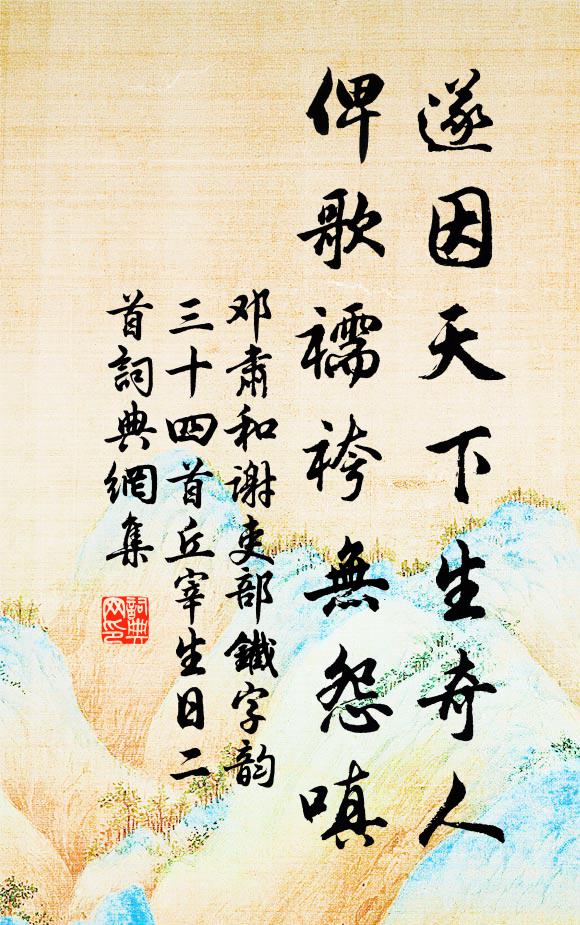 遂因天下生奇人
俾歌襦袴無怨嗔
邓肅和谢吏部鐵字韵
三十四首丘宰生日二
首詞典網集
詞典
网印